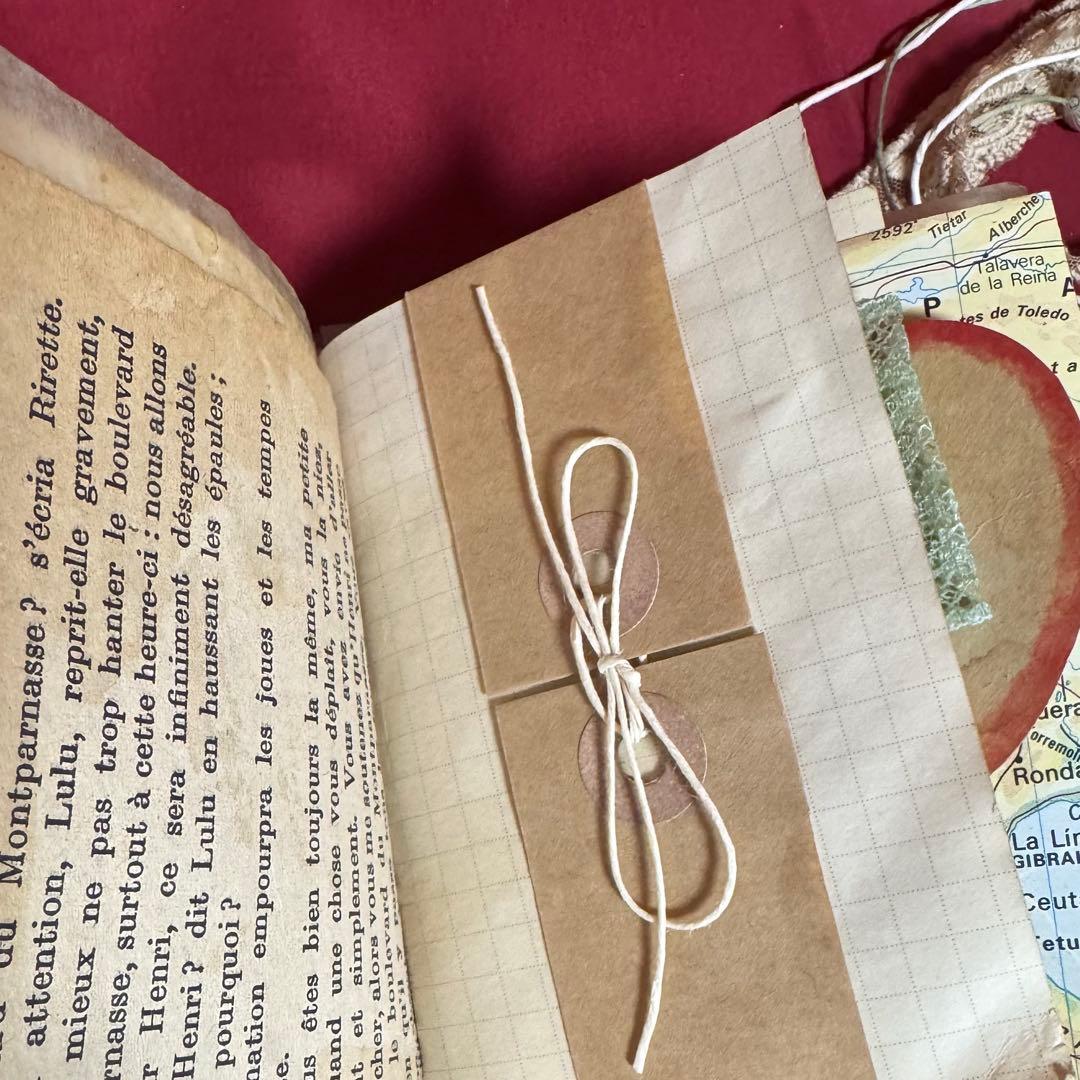 du Montparnasse? s'écria Rirette.
attention, Lulu, reprit-elle gravement,
mieux ne pas trop hanter le boulevard
rnasse, surtout à cette heure-ci: nous allons
r Henri, ce sera infiniment désagréable.
Henri? dit Lulu en haussant les épaules;
pourquoi?
nation empourpra les joues et les tempes
e.
us êtes bien toujours la même, ma petite
uand une chose vous déplaît, vous la niez,
t et simplement. Vous avez envie d'aller
cher, alors vous me soutenez qu'Henri ne passe
le boulevard du Montparnasse.
2592
Tietar
Alberche
Talavera
de la Reina
P
A
tes de Toledo
t a
uera
orremoli
Ronda
C
La Lín
GIBRAL
Ceuta
Tetu